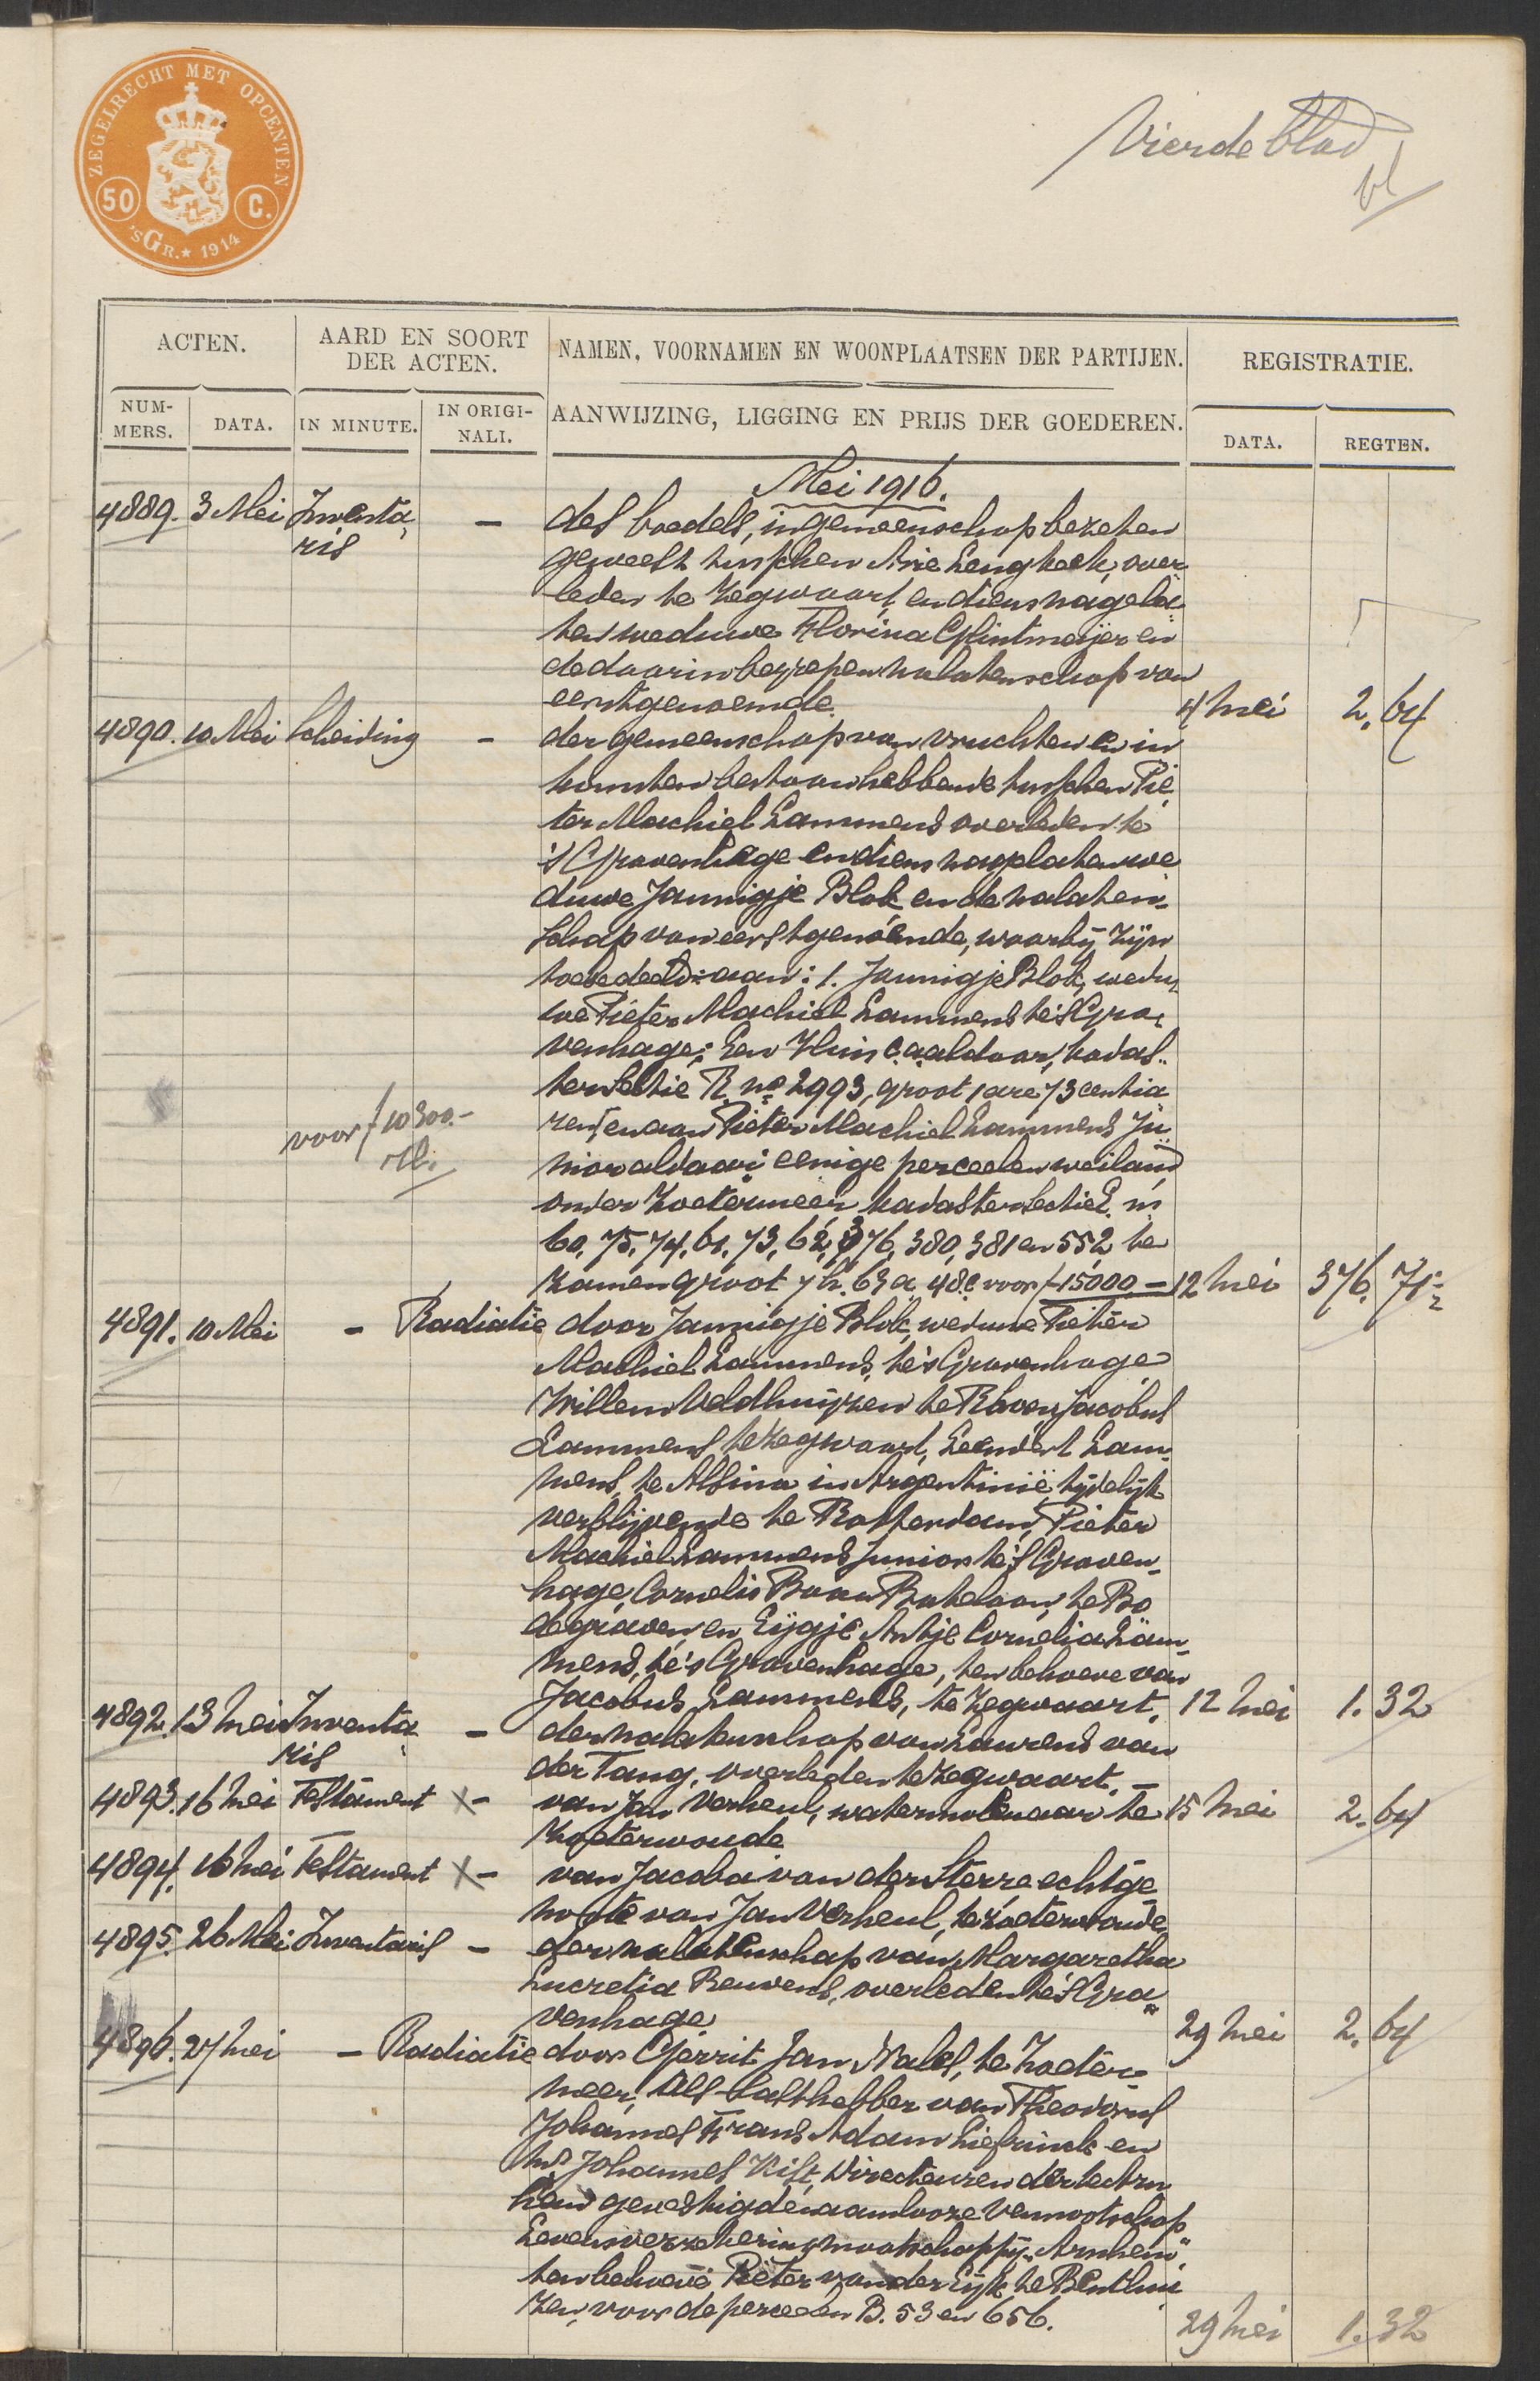 ZEGELRECHT MET OPCENTEN
50 C.
'sGr. ★ 1914
Vierde blad
ACTEN.
AARD EN SOORT
DER ACTEN.
NAMEN, VOORNAMEN EN WOONPLAATSEN DER PARTIJEN.
REGISTRATIE.
NUM-
MERS.
DATA.
IN MINUTE.
IN ORIGI-
NALI.
AANWIJZING, LIGGING EN PRIJS DER GOEDEREN.
DATA.
REGTEN.
Mei 1916.
4889. 3 Mei Inventa- — des boedels, in gemeenschap bezeten
ris geweest tusschen Arie Lengkeek, over
leden te Zegwaart en diens nagela
ten weduwe Florina Glintmeijer en
de daarin begrepen nalatenschap van
eerstgenoemde. 4 Mei 2.64
4890. 10 Mei Scheiding — der gemeenschap van vruchten en in
komsten bestaan hebbende tusschen Pie
ter Machiel Lammens overleden te
's Gravenhage en diens nagelaten we
duwe Jannigje Blok en de nalaten-
schap van eerstgenoemde, waarbij zijn
toebedeeld aan: 1. Jannigje Blok, wedu-
we Pieter Machiel Lammens te 's Gra-
venhage: Een Huis c.a. aldaar, kadas-
ter Sectie R. no 2993, groot 1 are 73 centia
voor f 10300.- ren, en aan Pieter Machiel Lammens Ju
nior aldaar: eenige perceelen weiland
onder Zoetermeer kadaster sectie E. ns
60, 75, 74, 61, 73, 62, 376, 380, 381 en 552 te
zamen groot 7 h. 63 a. 48 c. voor f 15000.— 12 Mei 376.71
4891. 10 Mei — Radiatie door Jannigje Blok, weduwe Pieter
Machiel Lammens, te 's Gravenhage
Willem Veldhuijzen te Rhoon, Jacobus
Lammens te Zegwaart, Leendert Lam-
mens, te Alsina in Argentinië, tijdelijk
verblijvende te Rotterdam, Pieter
Machiel Lammens Junior te 's Graven-
hage, Cornelis Batelaan, te Bo
degraven en Eijgje Antje Cornelia Lam-
mens, te 's Gravenhage, ten behoeve van
Jacobus Lammens, te Zegwaart. 12 Mei 1.32
4892. 13 Mei Inventa- — der nalatenschap van Laurens van
ris der Tang, overleden te Zegwaart. —
4893. 16 Mei Testament X — van Jan Verheul, watermolenaar te 15 Mei 2.64
Zoeterwoude
4894. 16 Mei Testament X — van Jacoba van der Sterre echtge
noote van Jan Verheul, te Zoeterwoude
4895. 26 Mei Inventaris — der nalatenschap van Margaretha
Lucretia Reuvens, overleden te 's Gra-
venhage 29 Mei 2.64
4896. 27 Mei — Radiatie door Gerrit Jan Nales, te Zoeter-
meer, als lasthebber van Theodorus
Johannes Frans Adam Liefrinck en
Mr. Johannes Kist, Directeuren der te Arn
hem gevestigde naamlooze vennootschap
Levensverzekeringmaatschappij "Arnhem"
ten behoeve Pieter van der Eijk te Benthui
zen, voor de perceelen B. 53 en 656. 29 Mei 1.32